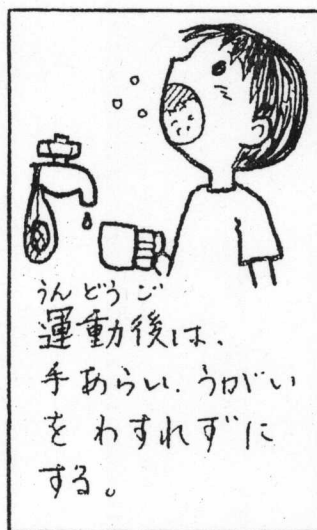 うんどうご
運動後は、
手あらい、うがい
をわすれずに
する。